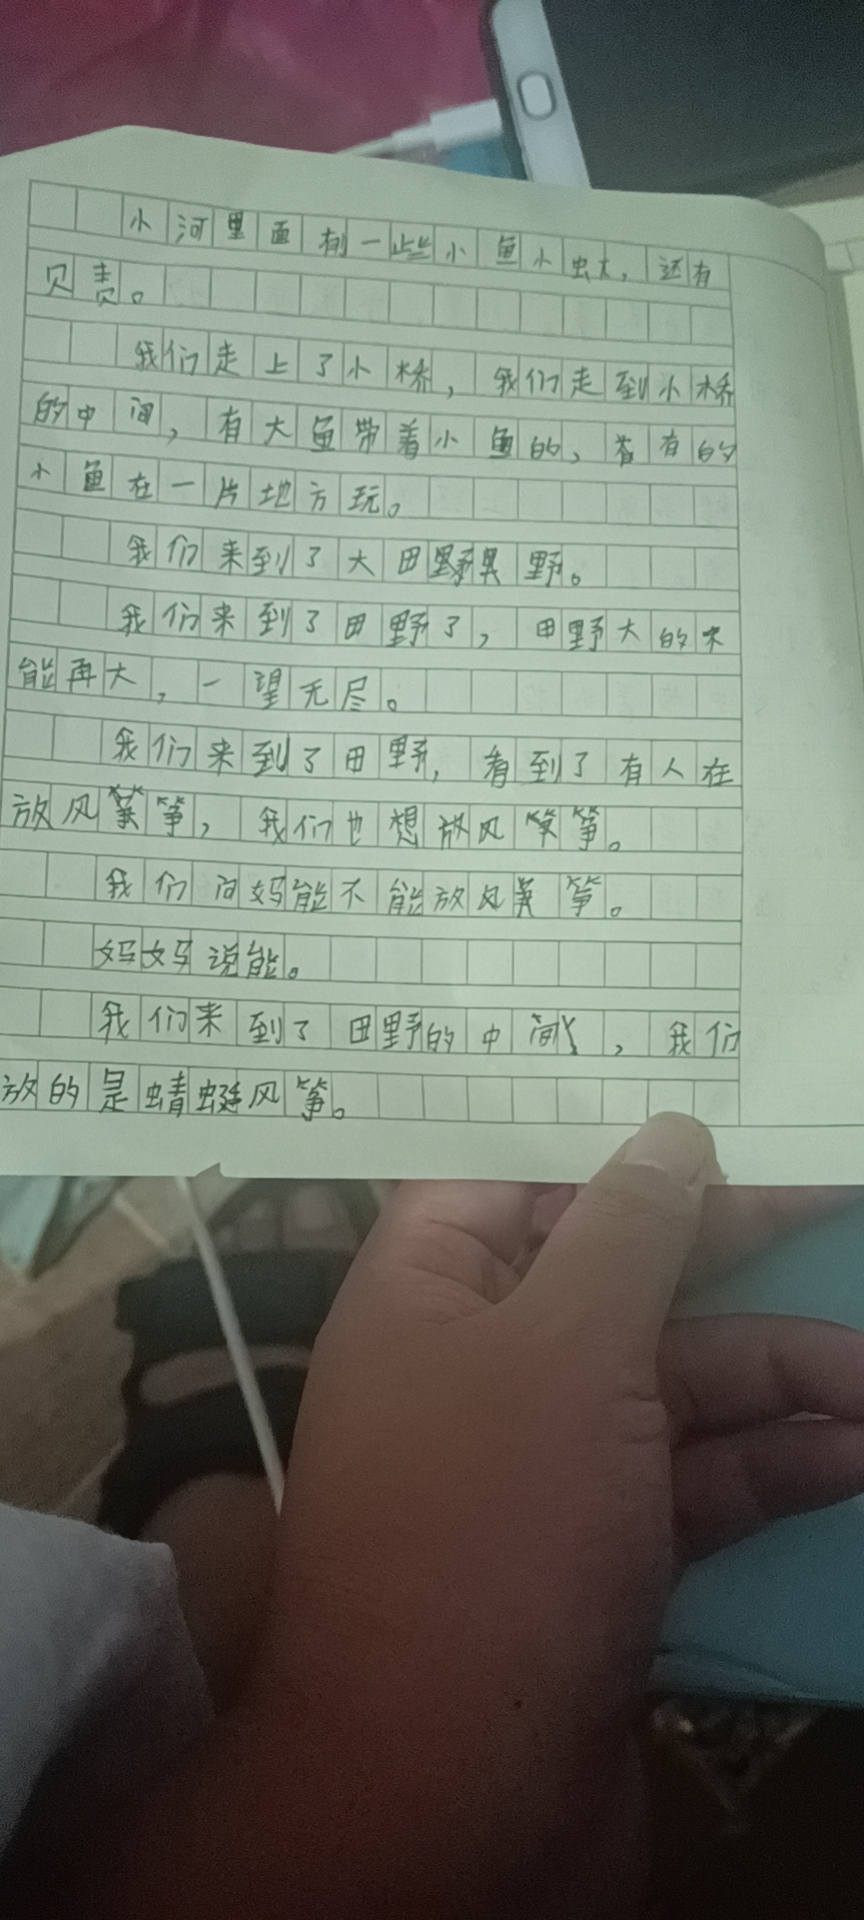 小河里面有一些小鱼小虫大，还有
贝责。
我们走上了小桥，我们走到小桥
的中间，有大鱼带着小鱼的，有的
小鱼在一片地方玩。
我们来到了大田野野。
我们来到了田野了，田野大的不
能再大，一望无尽。
我们来到了田野，看到了有人在
放风筝，我们也想放风筝。
我们问妈能不能放风筝。
妈妈说能。
我们来到了田野的中间，我们
放的是蜻蜓风筝。